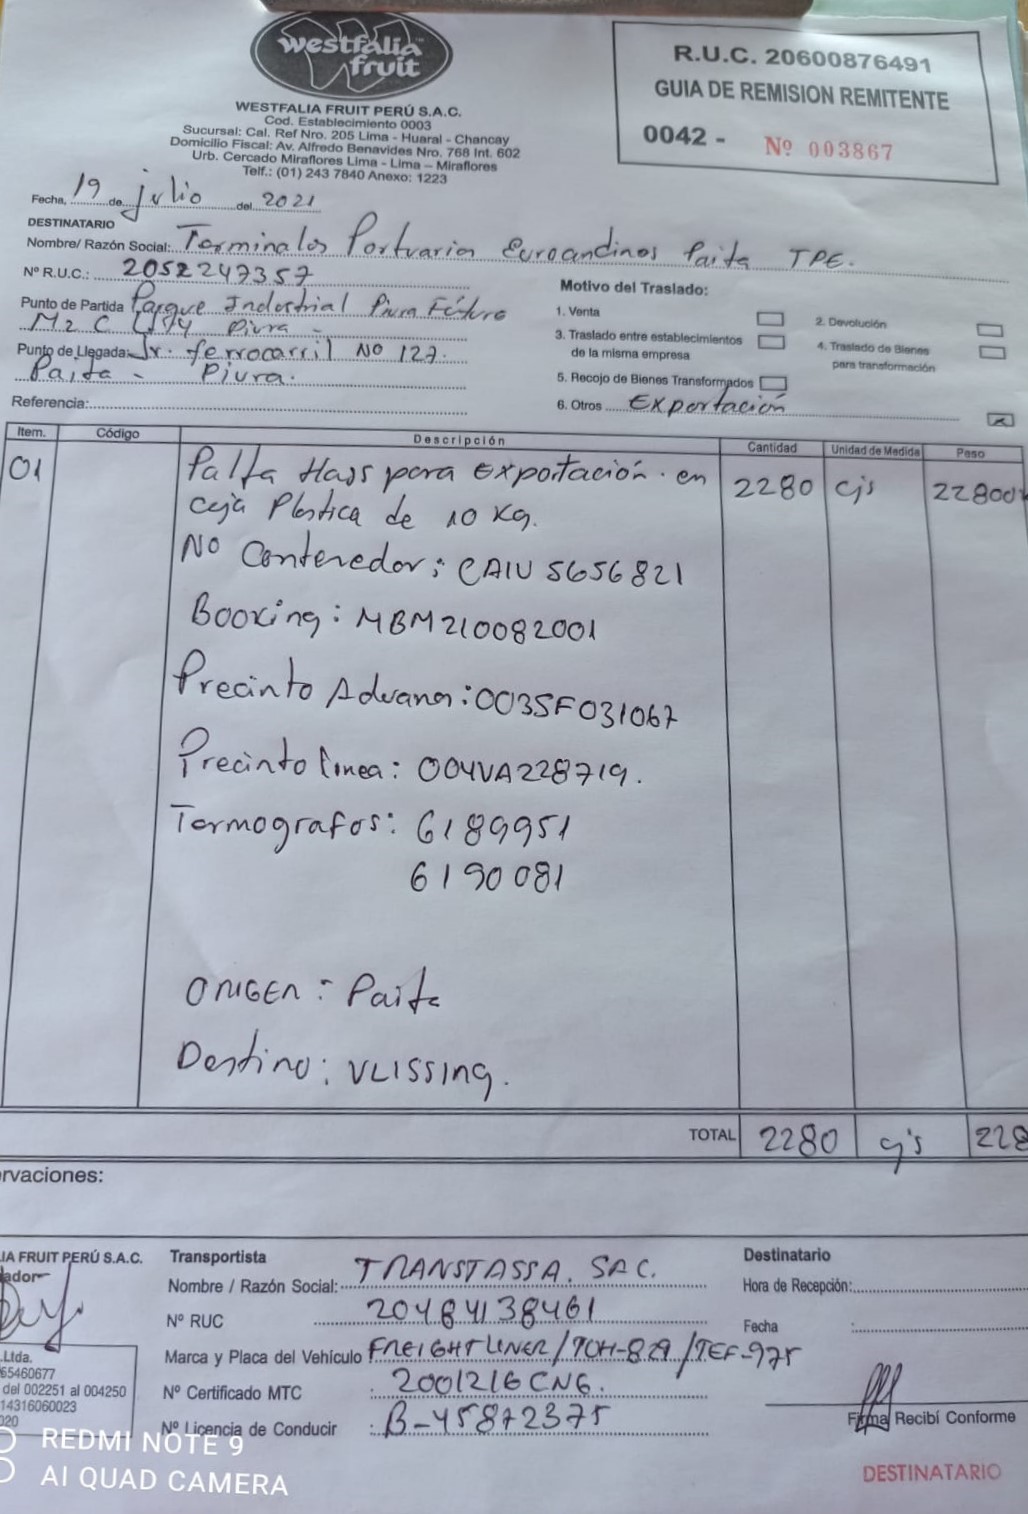 westfalia
fruit
WESTFALIA FRUIT PERÚ S.A.C.
Cod. Establecimiento 0003
Sucursal: Cal. Ref Nro. 205 Lima - Huaral - Chancay
Domicilio Fiscal: Av. Alfredo Benavides Nro. 768 Int. 602
Urb. Cercado Miraflores Lima - Lima - Miraflores
Telf.: (01) 243 7840 Anexo: 1223
R.U.C. 20600876491
GUIA DE REMISION REMITENTE
0042 - Nº 003867
Fecha, 19 de julio del 2021
DESTINATARIO
Nombre/ Razón Social: Terminales Portuarios Euroandinos Paita TPE.
Nº R.U.C.: 2052247357
Punto de Partida Parque Industrial Piura Futuro
Mz C Piura -
Punto de Llegada: Jr. ferrocarril No 127.
Paita - Piura.
Referencia:
Motivo del Traslado:
1. Venta
2. Devolución
3. Traslado entre establecimientos
de la misma empresa
4. Traslado de Bienes
para transformación
5. Recojo de Bienes Transformados
6. Otros Exportación X
Item. Código Descripción Cantidad Unidad de Medida Peso
01 Palta Hass para Exportación en 2280 cjs 22800
caja Plastica de 10 Kg.
No Contenedor: CAIU 5656821
Booking: MBM210082001
Precinto Aduana: 003SF031067
Precinto linea: 004VA228719.
Termografos: 6189951
6190081
ORIGEN: Paita
Destino: VLISSING.
TOTAL 2280 cjs 228
rvaciones:
IA FRUIT PERÚ S.A.C.
ador
Ltda.
65460677
del 002251 al 004250
14316060023
020
Transportista
Nombre / Razón Social: TRANSTASSA. SAC.
Nº RUC 20484138461
Marca y Placa del Vehículo FREIGHTLINER/TOH-829/TEF-975
Nº Certificado MTC : 2001216CNG.
Nº Licencia de Conducir : B-45872375
Destinatario
Hora de Recepción:
Fecha :
Firma Recibí Conforme
DESTINATARIO
REDMI NOTE 9
AI QUAD CAMERA